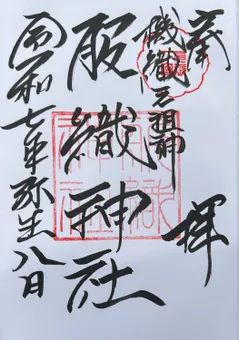 奉
拝
磯織天神
服織神社
令和七年弥生八日